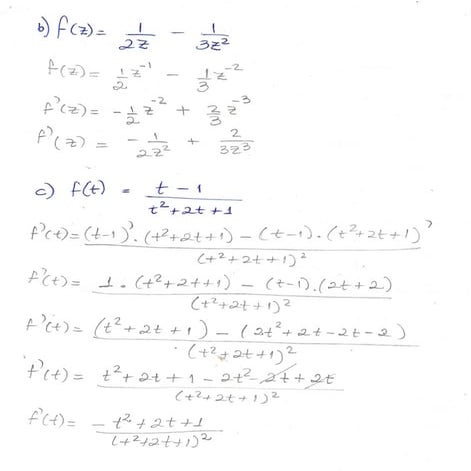 b) f(z) = 1/2z - 1/3z²
f(z) = 1/2 z⁻¹ - 1/3 z⁻²
f'(z) = -1/2 z⁻² + 2/3 z⁻³
f'(z) = -1/2z² + 2/3z³
c) f(t) = t-1/t²+2t+1
f'(t) = (t-1)'.(t²+2t+1) - (t-1).(t²+2t+1)'/(t²+2t+1)²
f'(t) = 1.(t²+2t+1) - (t-1).(2t+2)/(t²+2t+1)²
f'(t) = (t²+2t+1) - (2t²+2t-2t-2)/(t²+2t+1)²
f'(t) = t²+2t+1-2t²-2t+2t/(t²+2t+1)²
f'(t) = -t²+2t+1/(t²+2t+1)²